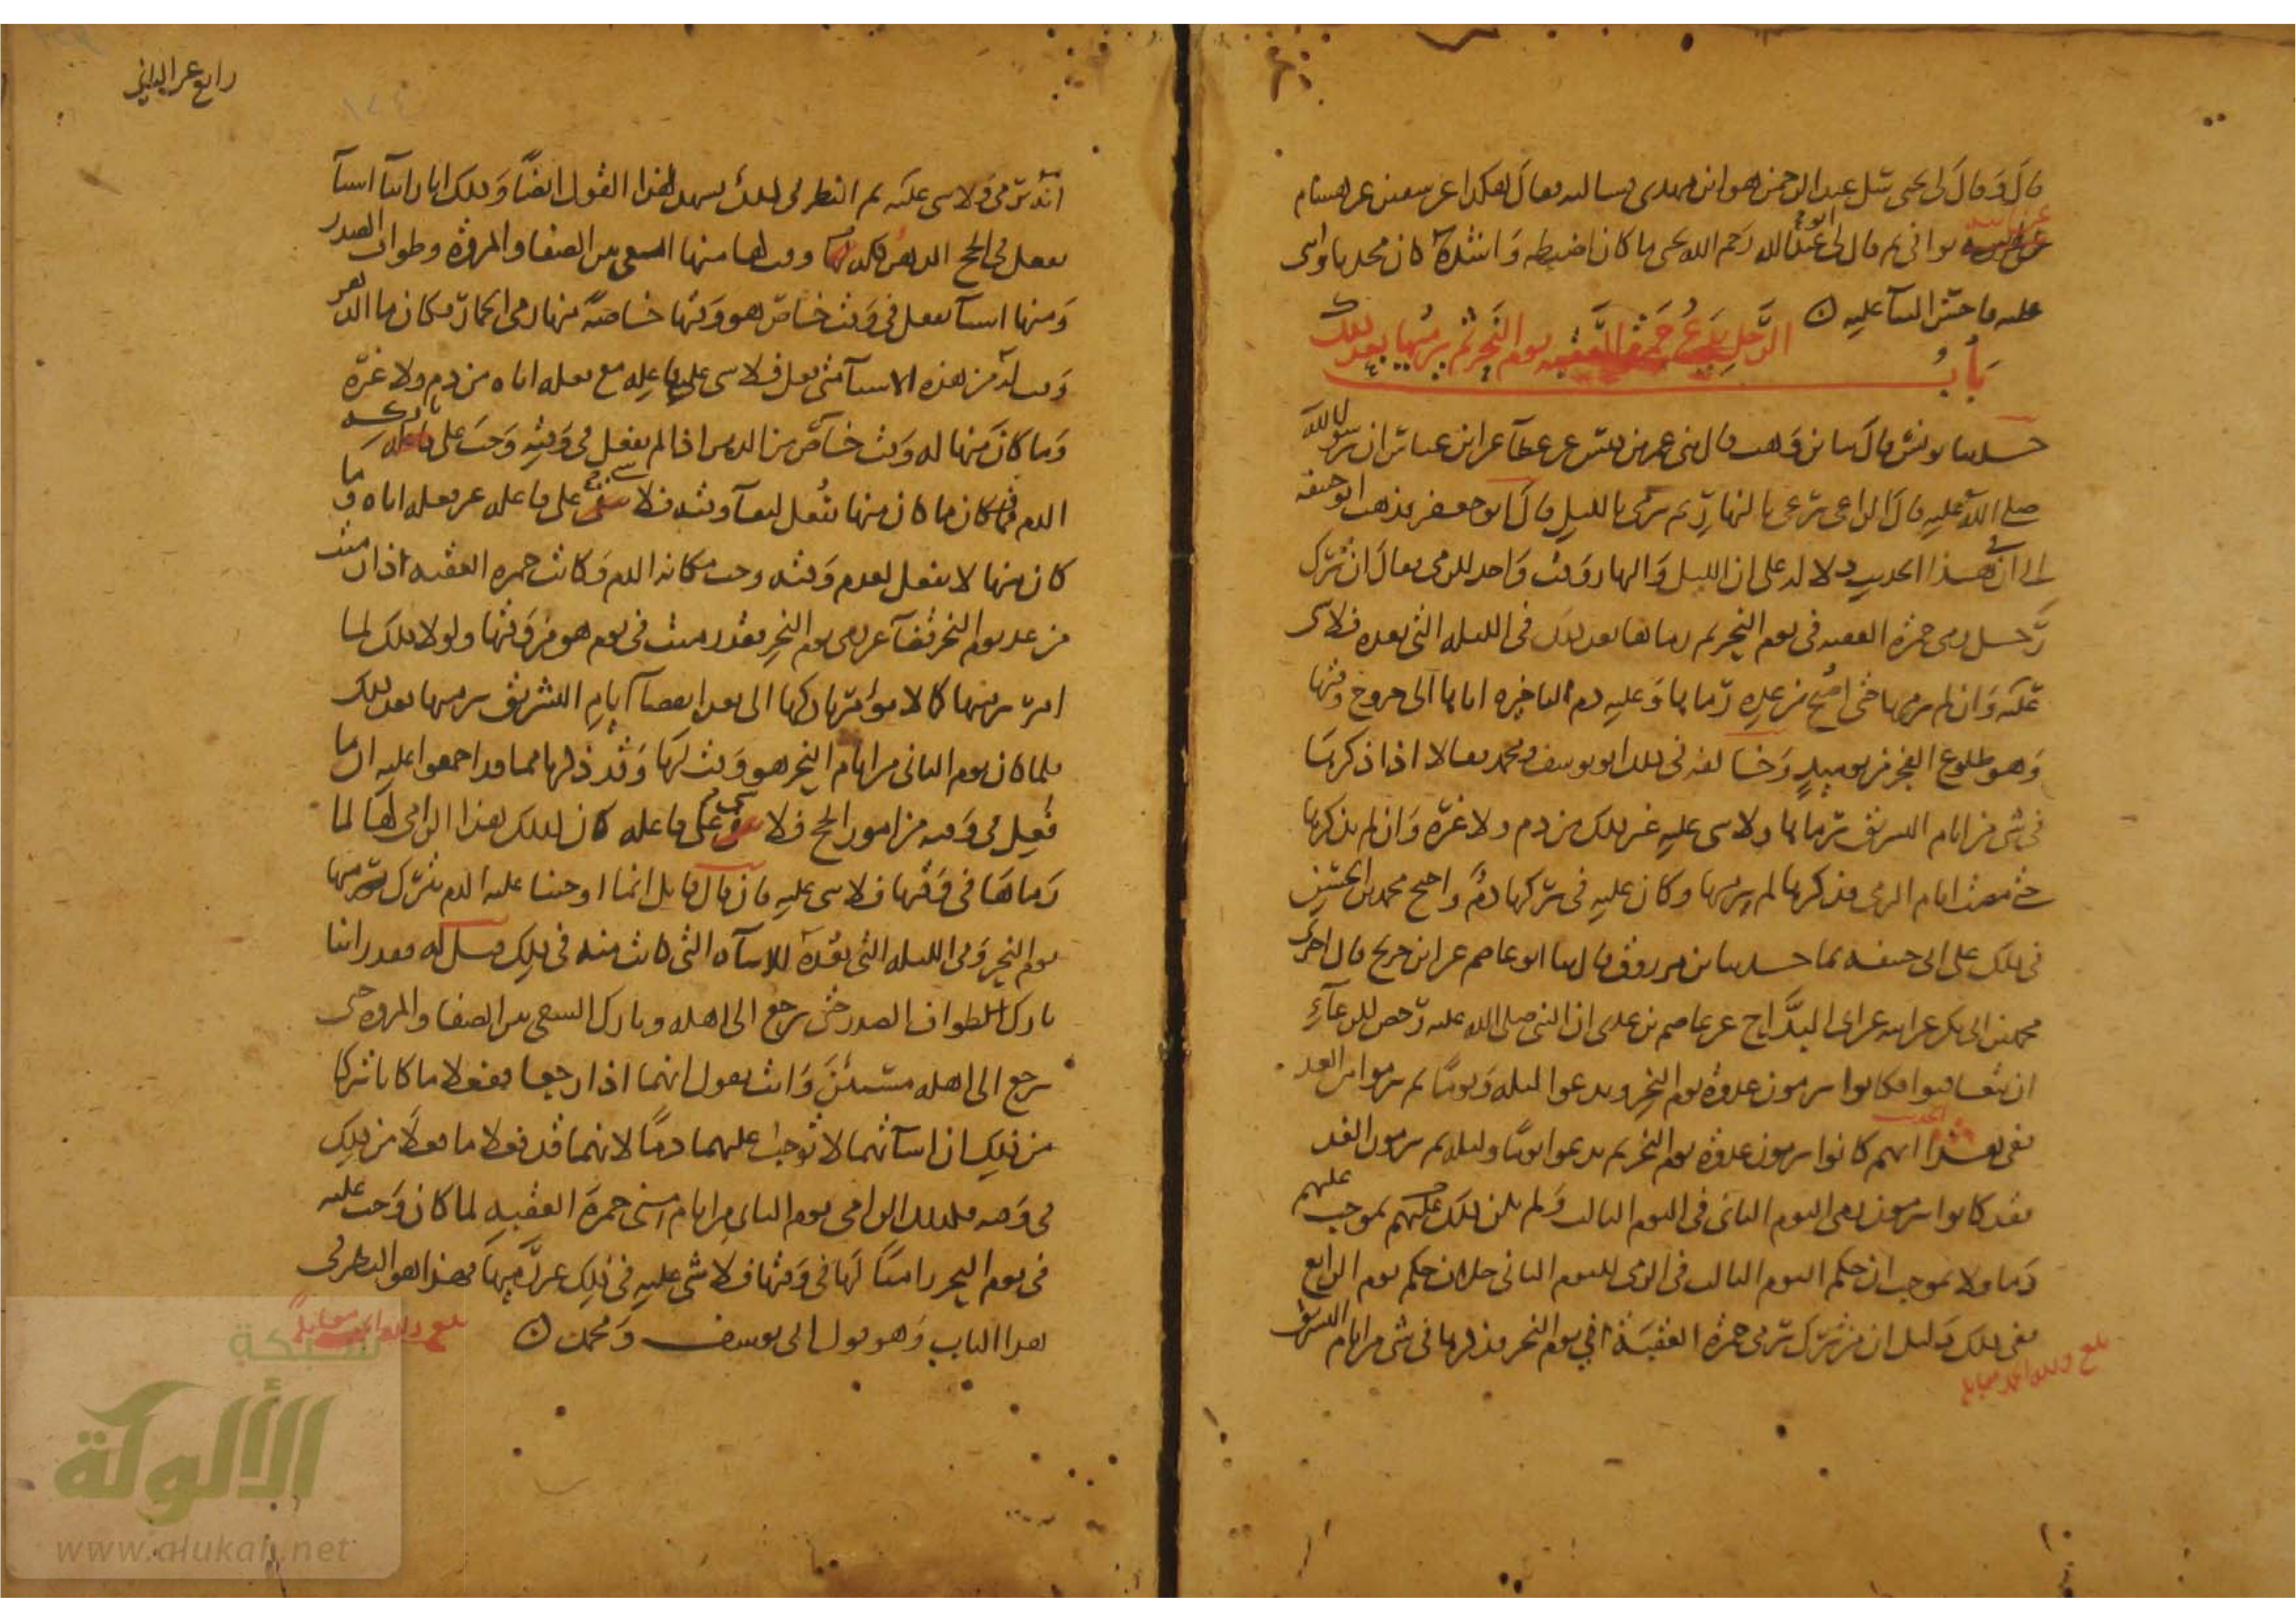 قال وقال لي يحيى سئل عبد الرحمن هو ابن مهدى يسأله فقال هكذا عن سفين عن هشام
ثم قال لى ابو عبد الله رحمه الله يحيى ما كان اضبطه واشده كان محدثا واثنى
عليه فاحسن الثنا عليه
باب الرجل يدع جمرة العقبه يوم النحر ثم يرميها بعد ذلك
حدثنا يونس قال ثنا ابن وهب قال ثنى عمر بن قيس عن عطآ عن ابن عباس ان رسول الله
صلى الله عليه قال الراعى يرعى بالنهار ثم يرمى بالليل قال ابو جعفر فذهب ابو حنيفه
الى ان فى هذا الحديث دلاله على ان الليل والنهار وقت واحد للرمى فقال ان ترك
رجل رمى جمرة العقبه فى يوم النحر ثم رماها بعد ذلك فى الليله التى بعده فلا شى
عليه وان لم يرمها حتى اصبح من غده رماها وعليه دم لتاخيره اياها الى خروج وقتها
وهو طلوع الفجر من يوميذ وخالفه فى ذلك ابو يوسف ومحمد فقالا اذا ذكرها
فى شى من ايام التشريق رماها ولا شى عليه غير ذلك من دم ولا غيره وان لم يذكرها
حتى مضت ايام الرمى فذكرها لم يرمها وكان عليه فى تركها دم واحتج محمد بن الحسن
فى ذلك على ابى حنيفه بما حدثنا ابن مرزوق قال ثنا ابو عاصم عن ابن جريج قال اخبرنى
محمد بن ابى بكر عن ابيه عن ابى البداح عن عاصم بن عدى ان النبى صلى الله عليه رخص للرعآء
ان يتعاقبوا فكانوا يرمون غدوة يوم النحر ويدعوا ليله ويوما ثم يرموا من الغد
ففى هذا الحديث انهم كانوا يرمون غدوة يوم النحر ثم يدعوا يوما وليله ثم يرمون الغد
فقد كانوا يرمون رمى اليوم الثانى فى اليوم الثالث ولم يكن ذلك بموجب عليهم
دما ولا بموجب ان حكم اليوم الثالث فى الرمى لليوم الثانى خلاف حكم يوم الرابع
ففى ذلك دليل ان من ترك رمى جمرة العقبة فى يوم النحر فذكرها فى شى من ايام التشريق
بلغ ولله الحمد مقابلة
رابع عشر الثانى
انه يرمى ولا شى عليه ثم النظر فى ذلك يشهد لهذا القول ايضا وذلك انا راينا اشيا
تفعل فى الحج الدهر كله وقت لها منها السعى بين الصفا والمروة وطواف الصدر
ومنها اشيا تفعل فى وقت خاص هو وقتها خاصة منها رمى الجمار فكان ما الدهر
وقت له من هذه الاشيا متى فعل فلا شى على فاعله مع فعله اياه من دم ولا غيره
وما كان منها له وقت خاص من الدهر اذا لم يفعل فى وقته وجب على تاركه
الدم فكان ما كان منها يفعل لبقآ وقته فلا شى على فاعله غير فعله اياه وما
كان منها لا يفعل لعدم وقته وجب مكانه الدم وكانت جمرة العقبه اذا رميت
من غد يوم النحر قضآ عن رمى يوم النحر فقد رميت فى يوم هو من وقتها ولولا ذلك لما
امر برميها كما لا يؤمر تاركها الى بعد انقضآ ايام التشريق برميها بعد ذلك
فلما كان يوم الثانى من ايام النحر هو وقت لها وقد ذكرنا مما قد اجمعوا عليه ان ما
فعل فى وقته من امور الحج فلا شى على فاعله كان كذلك هذا الرامى لها لما
رماها فى وقتها فلا شى عليه فان قال قايل انما اوجبنا عليه الدم بترك رميها
يوم النحر وفى الليله التى بعده للاساه التى كانت منه فى ذلك قيل له فقد راينا
تارك لطواف الصدر حتى يرجع الى اهله وتارك السعى بين الصفا والمروه حتى
يرجع الى اهله مسيئين وانت تقول انهما اذا رجعا ففعلا ما كانا تركا
من ذلك ان اسآتهما لا توجب عليهما دما لانهما قد فعلا ما فعلا من ذلك
فى وقته فكذلك الرامى يوم الثانى من ايام منى جمرة العقبه لما كان وجب عليه
فى يوم النحر راميا لها فى وقتها فلا شى عليه فى ذلك غير رميها فهذا هو النظر فى
هذا الباب وهو قول ابى يوسف ومحمد
بلغ ولله الحمد مقابلة
شبكة
الألوكة
www.alukah.net